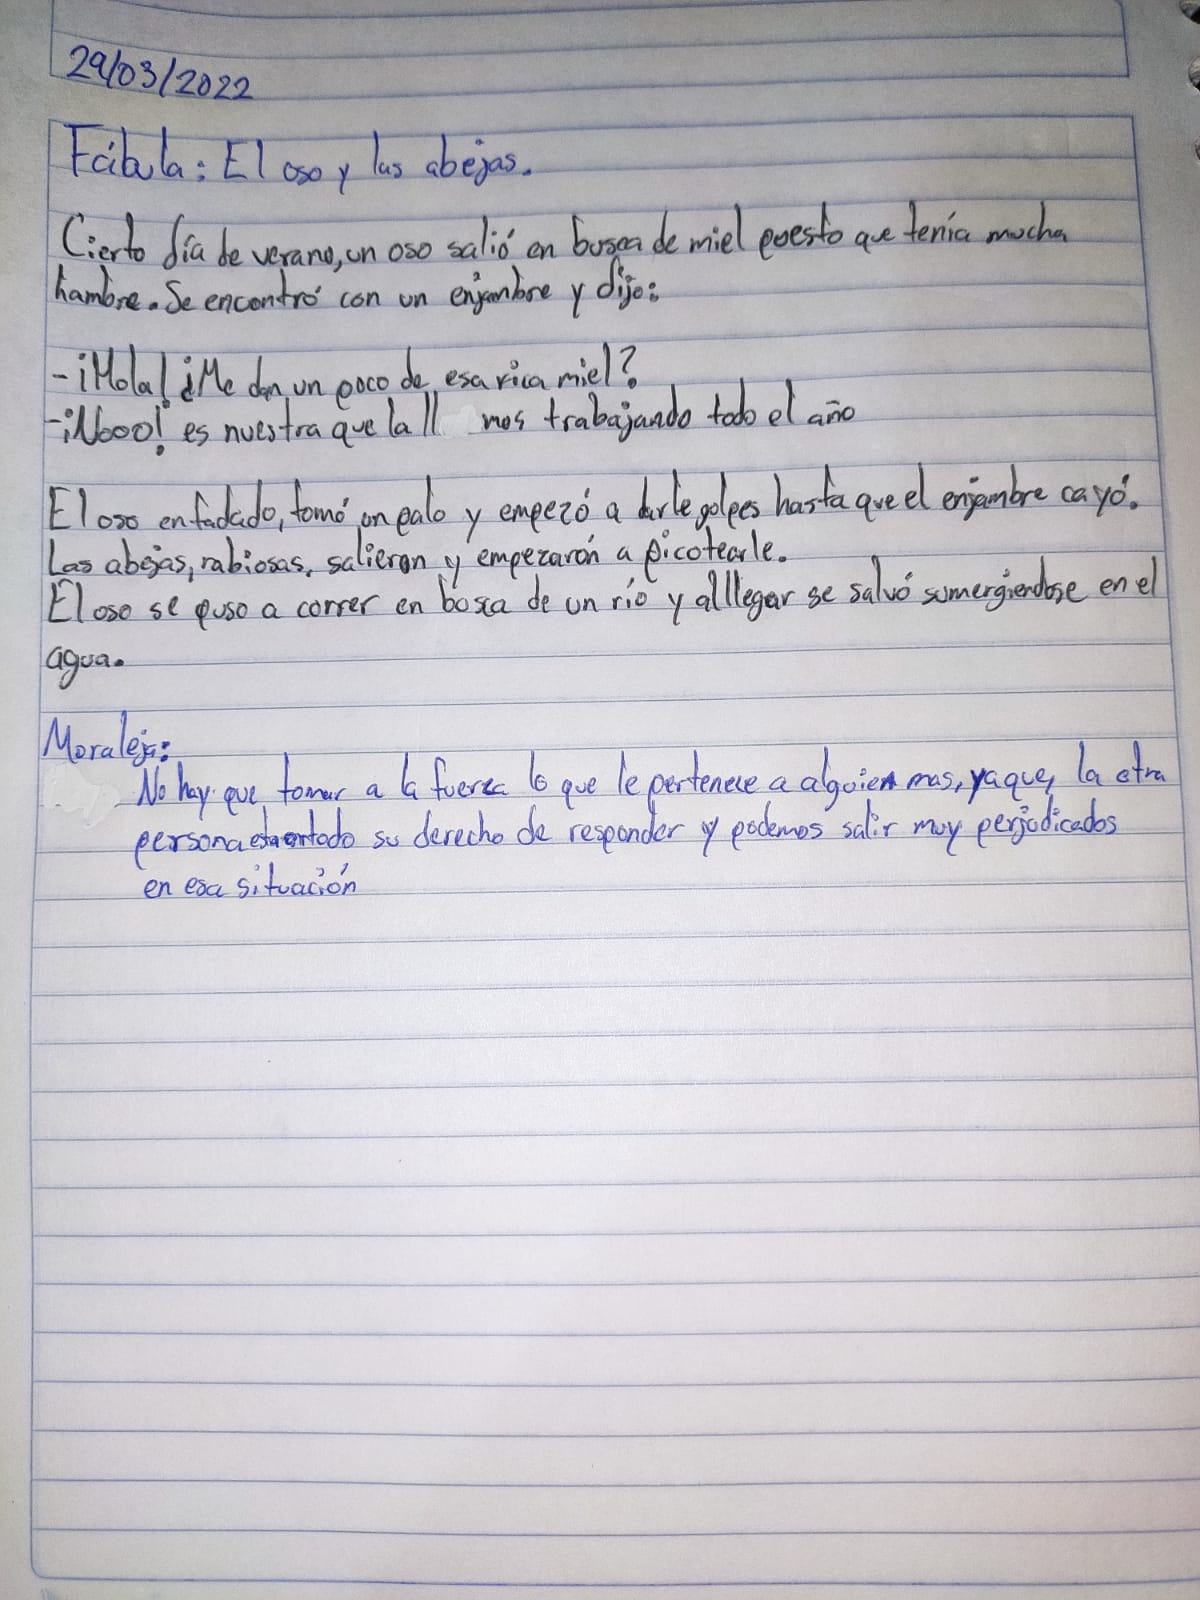 29/03/2022
Fábula: El oso y las abejas.
Cierto día de verano, un oso salió en busca de miel puesto que tenía mucha
hambre. Se encontró con un enjambre y dijo:
- ¡Hola! ¿Me dan un poco de esa rica miel?
- ¡Nooo! es nuestra que la ll mos trabajando todo el año
El oso enfadado, tomó un palo y empezó a darle golpes hasta que el enjambre cayó.
Las abejas, rabiosas, salieron y empezarón a picotearle.
El oso se puso a correr en busca de un río y al llegar se salvó sumergiendose en el
agua.
Moraleja:
No hay que tomar a la fuerza lo que le pertenece a alguien mas, ya que, la otra
persona esta en todo su derecho de responder y podemos salir muy perjudicados
en esa situación